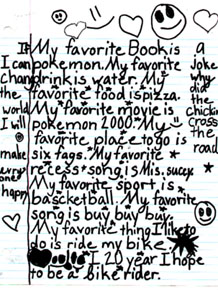 My favorite Book is
pokemon. My favorite
drink is water. My
favorite food is pizza.
My favorite movie is
pokemon 2000. My
favorite place to go is
six fags. My favorite
recess song is Mis. sucey
My favorite sport is
basketball. My favorite
song is buy buy buy.
My favorite thing I like to
do is ride my bike
I 20 year I hope
to be a bike rider.
If
I can
chang
the
world
I will
make
evry
one
happy
a
Joke
why
did
the
chickin
cross
the
road